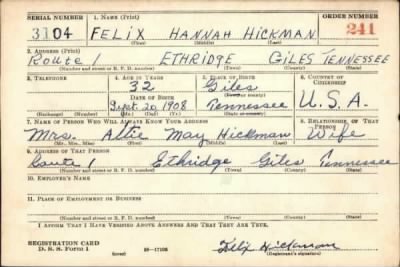 SERIAL NUMBER 1. NAME (Print) ORDER NUMBER
3104 FELIX HANNAH HICKMAN 241
(First) (Middle) (Last)
2. ADDRESS (Print)
Route 1 ETHRIDGE GILES TENNESSEE
(Number and street or R. F. D. number) (Town) (County) (State)
3. TELEPHONE 4. AGE IN YEARS 5. PLACE OF BIRTH 6. COUNTRY OF CITIZENSHIP
32 Giles
(Town or county)
DATE OF BIRTH
Sept. 20 1908 Tennessee U.S.A.
(Mo.) (Day) (Yr.) (State or country)
7. NAME OF PERSON WHO WILL ALWAYS KNOW YOUR ADDRESS 8. RELATIONSHIP OF THAT PERSON
Mrs. Altie May Hickman Wife
(Mr., Mrs., Miss) (First) (Middle) (Last)
9. ADDRESS OF THAT PERSON
Route 1 Ethridge Giles Tennessee
(Number and street or R. F. D. number) (Town) (County) (State)
10. EMPLOYER'S NAME
11. PLACE OF EMPLOYMENT OR BUSINESS
(Number and street or R. F. D. number) (Town) (County) (State)
I AFFIRM THAT I HAVE VERIFIED ABOVE ANSWERS AND THAT THEY ARE TRUE.
REGISTRATION CARD
D. S. S. Form 1 (over) 16-17105 Felix Hickman
(Registrant's signature)